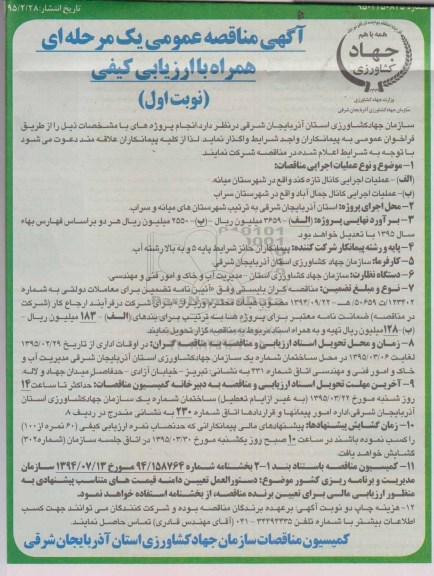 تاریخ انتشار: ۹۵/۲/۲۸
آگهی مناقصه عمومی یک مرحله ای
همراه با ارزیابی کیفی
(نوبت اول)
همه با هم
جهاد
کشاورزی
وزارت جهاد کشاورزی
سازمان جهاد کشاورزی آذربایجان شرقی
سازمان جهادکشاورزی استان آذربایجان شرقی در نظر دارد انجام پروژه های با مشخصات ذیل را از طریق
فراخوان عمومی به پیمانکاران واجد شرایط واگذار نماید لذا از کلیه پیمانکاران علاقه مند دعوت می شود
با توجه به شرایط اعلام شده در مناقصه شرکت نمایند
۱- موضوع و نوع عملیات اجرایی مناقصات:
(الف)- عملیات اجرایی کانال تازه کند واقع در شهرستان میانه.
(ب)- عملیات اجرایی کانال جمال آباد واقع در شهرستان سراب
۲- محل اجرای پروژه: استان آذربایجان شرقی به ترتیب شهرستان های میانه و سراب
۳- برآورد نهایی پروژه: (الف)- ۳۶۵۹ میلیون ریال - (ب)- ۲۵۵۰ میلیون ریال هر دو بر اساس فهارس بهاء
سال ۱۳۹۵ با تعدیل خواهد بود.
۴- پایه و رشته پیمانکار شرکت کننده: پیمانکاران حائز شرایط پایه ۵ و به بالا رشته آب
۵- کارفرما: سازمان جهاد کشاورزی استان آذربایجان شرقی
۶- دستگاه نظارت: سازمان جهاد کشاورزی استان - مدیریت آب و خاک و امور فنی و مهندسی
۷- نوع و مبلغ تضمین: مناقصه گران بایستی وفق «آئین نامه تضمین برای معاملات دولتی به شماره
۱۲۳۴۰۲/ت۵۰۶۵۹ هـ مورخ ۱۳۹۴/۰۹/۲۲» مصوبه هیأت محترم وزیران برای شرکت در فرآیند ارجاع کار (شرکت
در مناقصه) ضمانت نامه معتبر برای پروژه هـا به ترتیب برای بندهای (الف)- ۱۸۳ میلیون ریال -
(ب)- ۱۲۸ میلیون ریال تهیه و به همراه اسناد مربوط به مناقصه گزار تحویل نمایند
۸- زمان و محل تحویل اسناد ارزیابی و مناقصه به مناقصه گران: در اوقات اداری از تاریخ ۱۳۹۵/۰۲/۲۹
لغایت ۱۳۹۵/۰۳/۰۶ در محل ساختمان شماره یک سازمان جهادکشاورزی استان آذربایجان شرقی مدیریت آب و
خاک و امور فنی و مهندسی اتاق شماره ۲۳۱ به نشانی: تبریز - خیابان آزادی - حدفاصل میدان جهاد و لاله.
۹- آخرین مهلت تحویل اسناد ارزیابی و مناقصه به دبیرخانه کمیسیون مناقصات: حداکثر تا ساعت ۱۴
روز شنبه مورخ ۱۳۹۵/۰۳/۲۲ (به غیر از ایام تعطیل) ساختمان شماره یک سازمان جهادکشاورزی استان
آذربایجان شرقی/ اداره امور پیمانها و قراردادها اتاق شماره ۲۳۰ به نشانی مندرج در ردیف ۸
۱۰- زمان گشایش پیشنهادها: پیشنهادهای مالی پیمانکارانی که حدنصاب نمره ارزیابی کیفی (۶۰ نمره از ۱۰۰)
را کسب نموده باشند در ساعت ۱۰ صبح روز یکشنبه مورخ ۱۳۹۵/۰۳/۳۰ در اتاق جلسه سازمان (شماره ۳۰۲)
گشایش خواهد یافت
۱۱- کمیسیون مناقصه باستناد بند ۱-۲ بخشنامه شماره ۹۴/۱۵۸۷۶۴ مورخ ۱۳۹۴/۰۷/۱۳ سازمان
مدیریت و برنامه ریزی کشور موضوع: دستورالعمل تعیین دامنه قیمت های متناسب پیشنهادی به
منظور ارزیابی مالی برای تعیین برنده مناقصه، از بخشنامه استفاده خواهد نمود.
۱۲- هزینه چاپ دو نوبت آگهی برعهده برندگان مناقصه بوده و شرکت کنندگان می توانند جهت کسب
اطلاعات بیشتر با شماره تلفن ۳۴۴۹۲۳۳۵ - ۰۴۱ (آقای مهندس قادری) تماس حاصل نمایند.
کمیسیون مناقصات سازمان جهاد کشاورزی استان آذربایجان شرقی